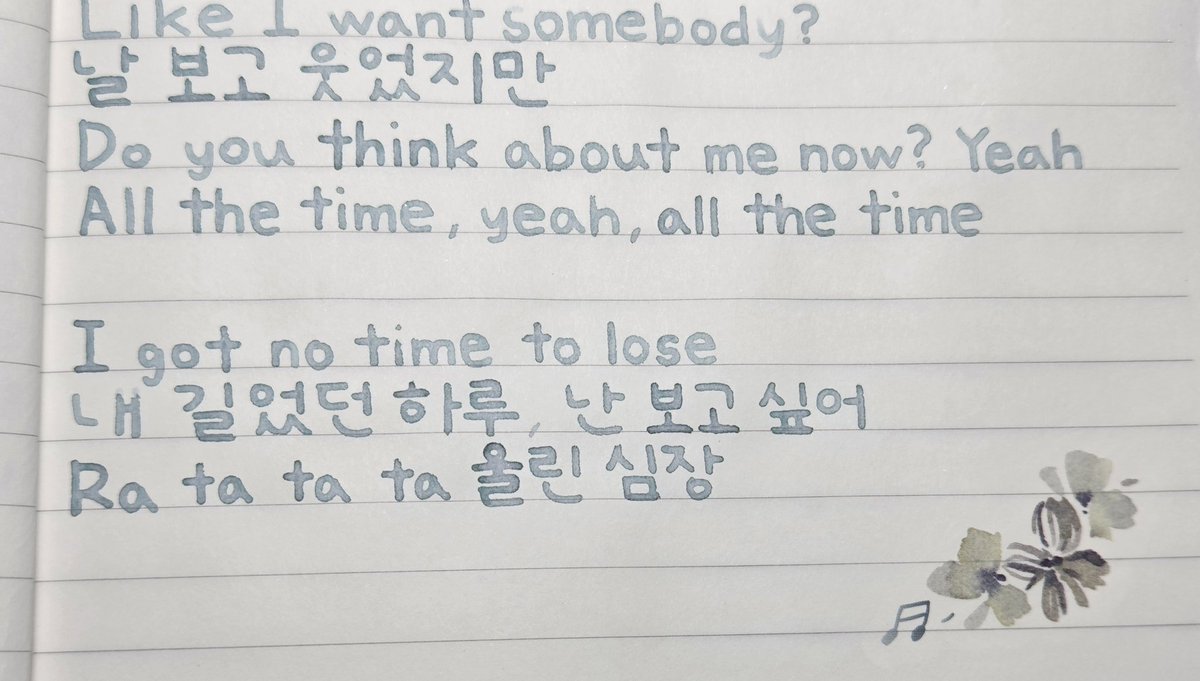 Like I want somebody?
날 보고 웃었지만
Do you think about me now? Yeah
All the time, yeah, all the time
I got no time to lose
내 길었던 하루, 난 보고 싶어
Ra ta ta ta 울린 심장